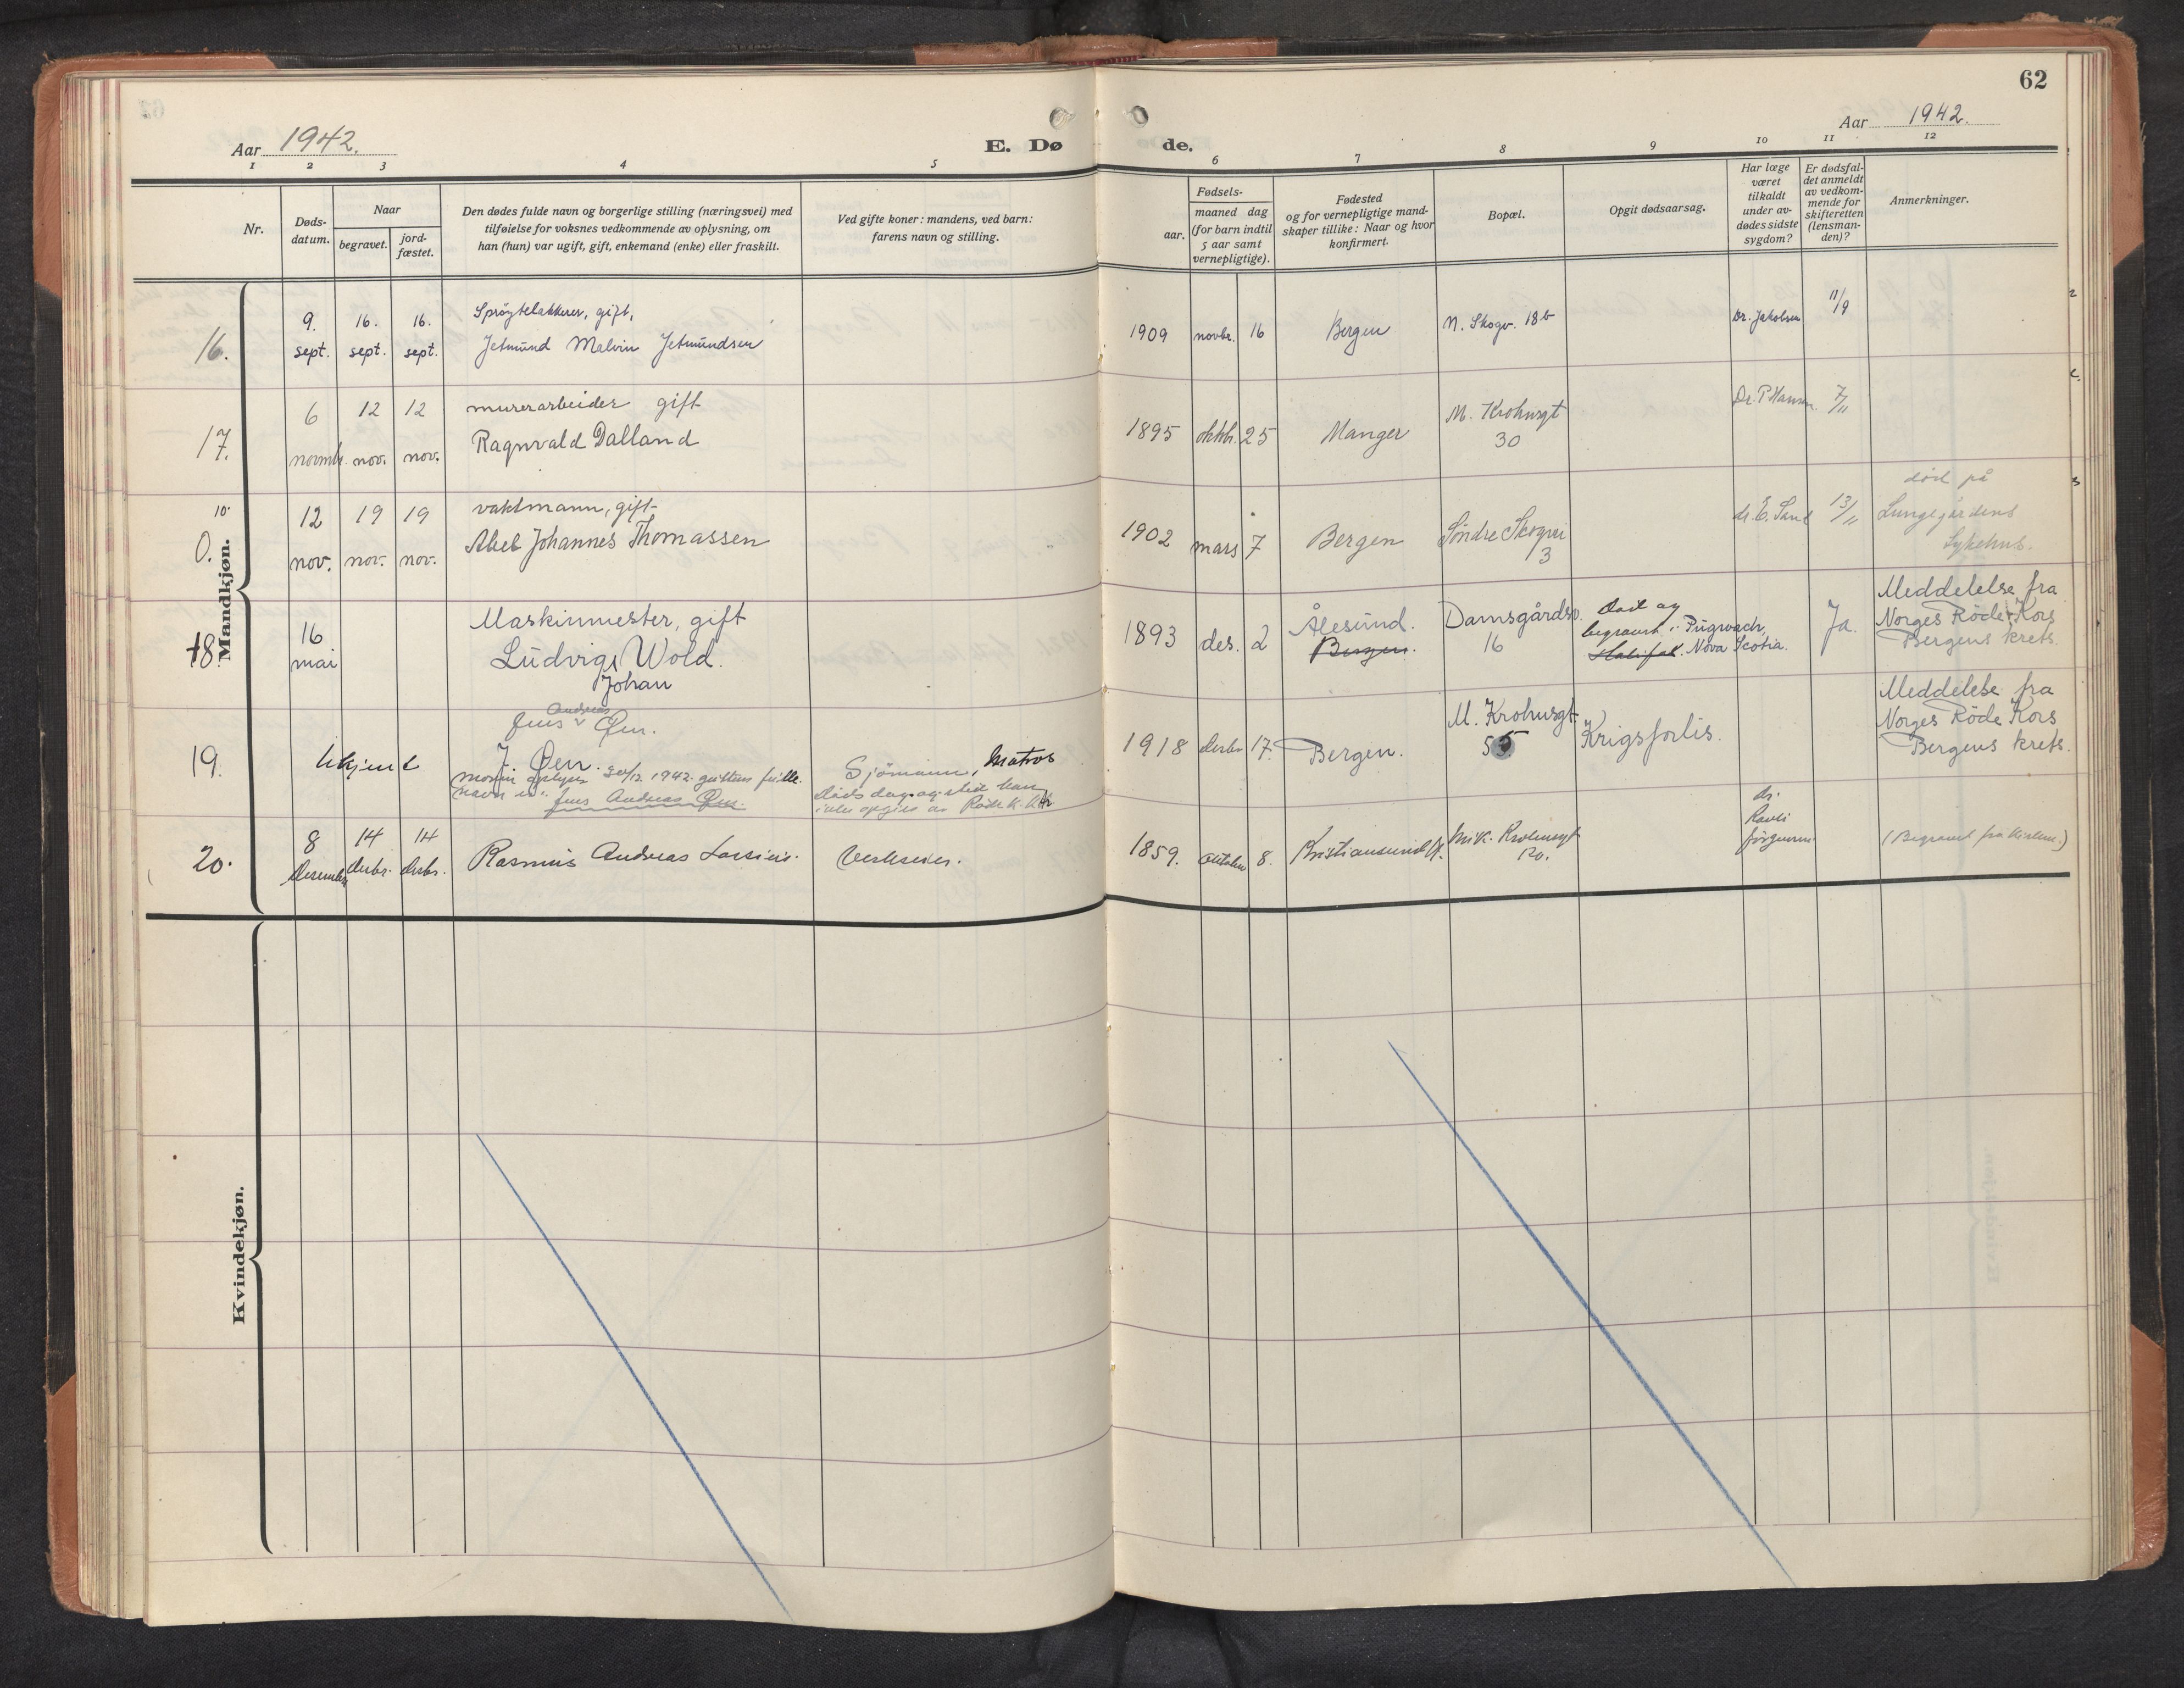 62
Aar 1942.
E. Døde.
Aar 1942.
1 2 3 4 5 6 7 8 9 10 11 12
Nr.
Døds-
datum.
Naar
begravet.
jord-
fæstet.
Den dødes fulde navn og borgerlige stilling (næringsvei) med
tilføielse for voksnes vedkommende av oplysning, om
han (hun) var ugift, gift, enkemand (enke) eller fraskilt.
Ved gifte koner: mandens, ved barn:
farens navn og stilling.
Fødsels-
aar.
maaned dag
(for barn indtil
5 aar samt
vernepligtige).
Fødested
og for vernepligtige mand-
skaper tillike: Naar og hvor
konfirmert.
Bopæl.
Opgit dødsaarsag.
Har læge
været
tilkaldt
under av-
dødes sidste
sygdom?
Er dødsfal-
det anmeldt
av vedkom-
mende for
skifteretten
(lensman-
den)?
Anmerkninger.
Mandkjøn.
16.
9. sept.
16. sept.
16. sept.
Sprøytelakkerer, gift,
Jetmund Malvin Jetmundsen
1909 novbr. 16
Bergen
N. Skogv. 18b
Dr. Jakobsen
11/9
17.
6 novmbr.
12 nov.
12 nov.
murerarbeider gift
Ragnvald Dalland
1895 oktbr. 25
Manger
M. Krohnsgt
30
Dr. P Hansen
7/11
10.
0.
12 nov.
19 nov.
19 nov.
vaktmann, gift
Abel Johannes Thomassen
1902 mars 7
Bergen
Søndre Skogvei
3
dr. E. Sand
13/11
død på
Lungegårdens
Sykehus.
18.
16
mai
Maskinmester, gift
Ludvig Wold.
Johan
1893 des. 2
Ålesund.
Bergen.
Damsgårdsv.
16
Død og
begravet i Pugwach,
Halifax. Nova Scotia.
Ja.
Meddelelse fra
Norges Røde Kors
Bergens krets.
19.
Ukjent
Andreas
Jens Øen.
J. Øen.
moren oplyser 30/12 1942 guttens fulle
navn er: Jens Andreas Øen.
Sjømann, Matros
Døds dag og sted kan
ikke opgies av Røde K.
1918 desbr 17.
Bergen.
M. Krohnsgt
55
Krigsforlis.
Meddelelse fra
Norges Røde Kors
Bergens krets.
20.
8 Desember
14 desbr.
14 desbr.
Rasmus Andreas
Verkseier.
1859. oktober 8.
Kristiansund N.
Mik. Krohnsgt
120.
dr.
(Begravet fra kirken.)
Kvindekjøn.